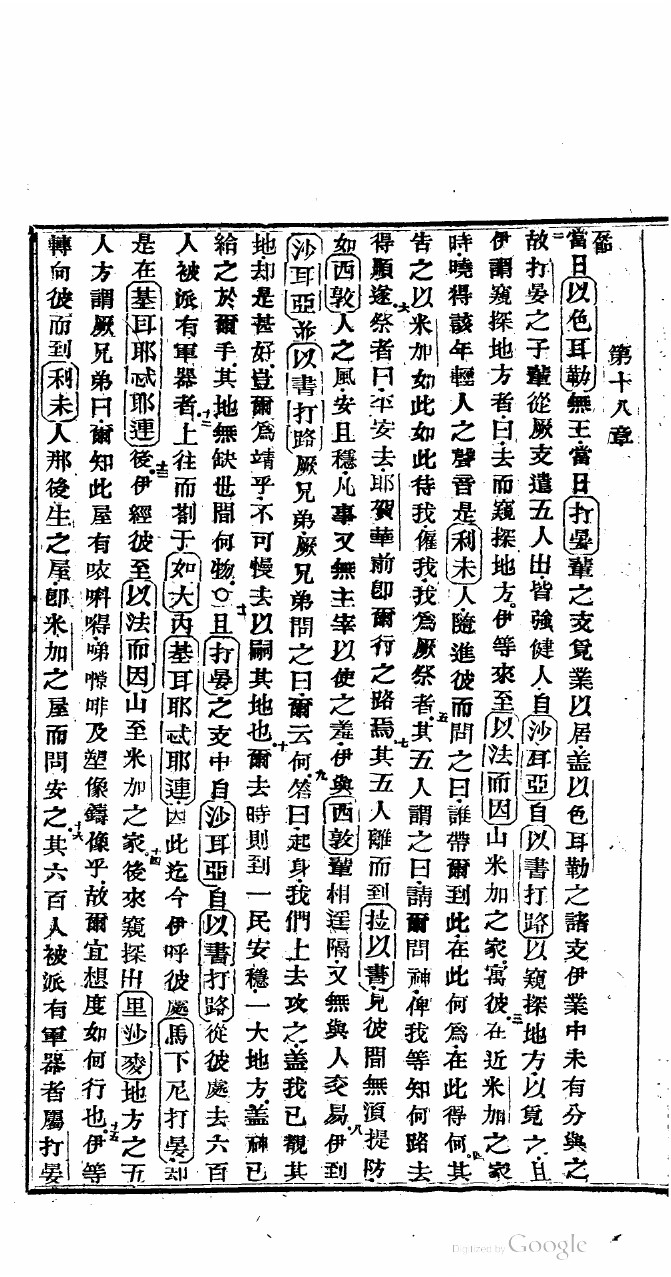 第十八章
節一當日以色耳勒無王當日打晏輩之支覓業以居盖以色耳勒之諸支伊業中未有分與之
二故打晏之子輩從厥支遣五人出皆強健人自沙耳亞自以書打路以窺探地方以覓之且
伊謂窺探地方者曰去而窺探地方伊等來至以法而因山米加之家寓彼三在近米加之家
時曉得該年輕人之聲音是利未人隨進彼而問之曰誰帶爾到此在此何爲在此得何四其
告之以米加如此如此待我僱我我爲厥祭者五其五人謂之曰請爾問神俾我等知何路去
得順遂六祭者曰平安去耶賀華前卽爾行之路焉七其五人離而到拉以書見彼間無須提防
如西敦人之風安且穩凡事又無主宰以使之羞伊與西敦輩相遥隔又無與人交易八伊到
沙耳亞並以書打路厥兄弟厥兄弟問之曰爾云何九答曰起身我們上去攻之盖我已觀其
地却是甚好豈爾爲靖乎不可慢去以嗣其地也十爾去時則到一民安穩一大地方盖神已
給之於爾手其地無缺世間何物〇十一且打晏之支中自沙耳亞自以書打路從彼處去六百
人被派有軍器者十二上往而劄于如大丙基耳耶忒耶連因此迄今伊呼彼處馬下尼打晏却
是在基耳耶忒耶連後十三伊經彼至以法而因山至米加之家十四後來窺探出里沙麥地方之五
人方謂厥兄弟曰爾知此屋有㕭唎㘔啼㘔啡及塑像鑄像乎故爾宜想度如何行也十五伊等
轉向彼而到利未人那後生之屋卽米加之屋而問安之十六其六百人被派有軍器者屬打晏
Digitized by Google